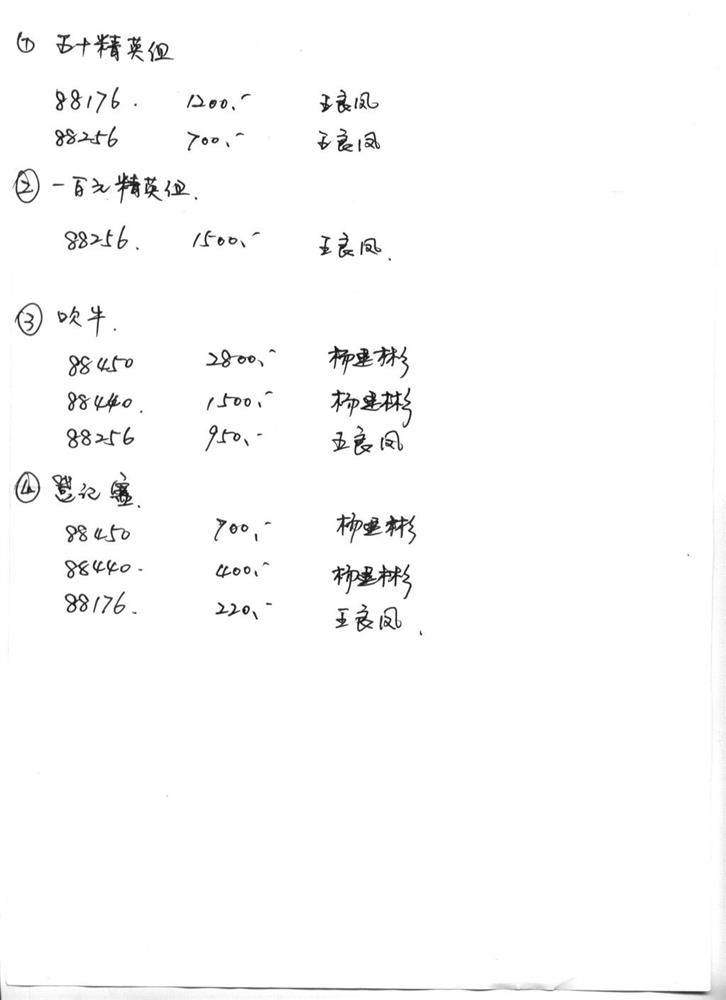 ① 五十精英组
88176. 1200.- 王良凤
88256 700.- 王良凤
② 一百元精英组.
88256. 1500.- 王良凤.
③ 吹牛.
88450 2800.- 杨建彬
88440. 1500.- 杨建彬
88256 950.- 王良凤
④ 登记赛.
88450 700.- 杨建彬
88440. 400.- 杨建彬
88176. 220.- 王良凤.